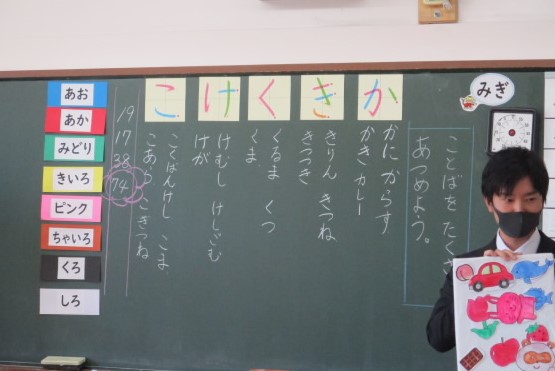 みぎ
ことばを たくさ
あつめよう。
か
かに からす
かき カレー
き
きりん きつね
きつつき
く
くるま くつ
くま
け
けむし けしごむ
けが
こ
こくばんけし こま
こあら こぎつね
19
17
38
74
あお
あか
みどり
きいろ
ピンク
ちゃいろ
くろ
しろ